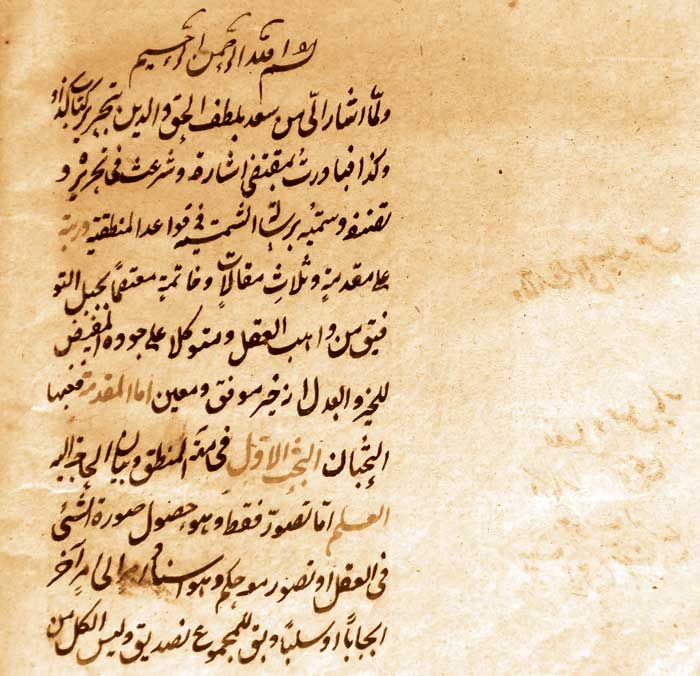 بسم الله الرحمن الرحيم
ولما اشار الى من سعد بلطف الحق والدين بتحرير كتاب كذا و
وكذا فبادرت بمقتضى اشارته وشرعت فى تحريره و
تصنيفه وسميته برسالة الشمسية فى قواعد المنطقية ورتبته
على مقدمة وثلاث مقالات وخاتمة معتصماً بحبل التو
فيق من واهب العقل ومتوكلا على جوده المفيض
للخير والعدل انه خير موفق ومعين اما المقدمة ففيها
البحثان البحث الاول فى مهية المنطق وبيان الحاجة اليه
العلم اما تصور فقط وهو حصول صورة الشئ
فى العقل او تصور معه حكم وهو اسناد امر الى امر آخر
ايجاباً او سلباً ويق للمجموع تصديق وليس الكل من